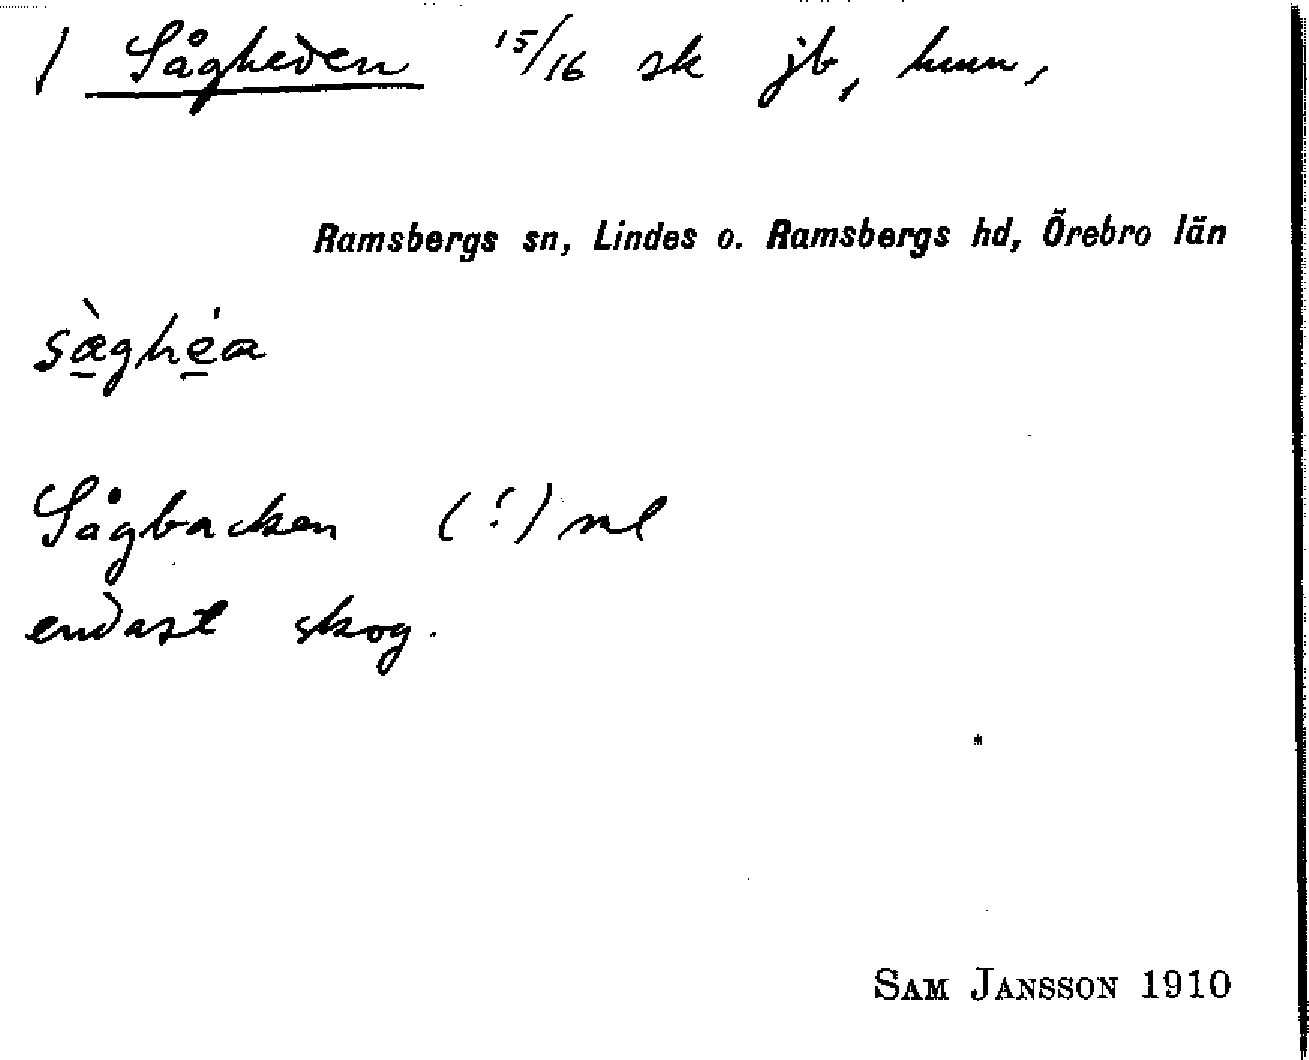 / Sågheden 15/16 sk jb, hmn,
Ramsbergs sn, Lindes o. Ramsbergs hd, Örebro län
sæ̀ghéa
Sågbacken (!) ml
endast skog.
SAM JANSSON 1910